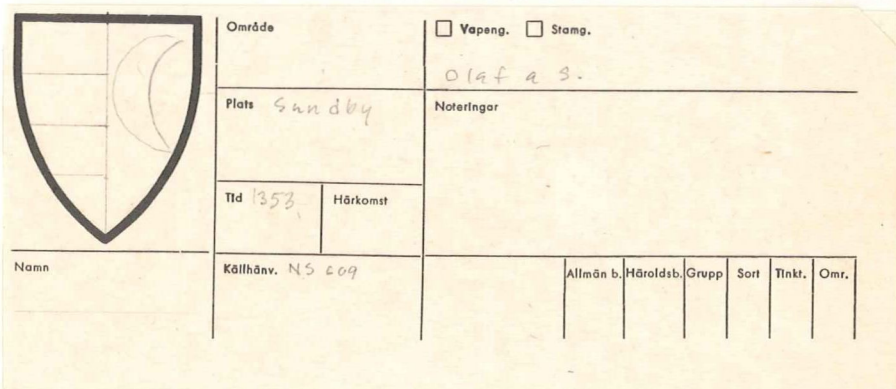 Område
Vapeng. Stamg.
Olaf a S.
Plats Sundby
Noteringar
Tid 1353
Härkomst
Namn
Källhänv. NS 609
Allmän b. Häroldsb. Grupp Sort Tinkt. Omr.